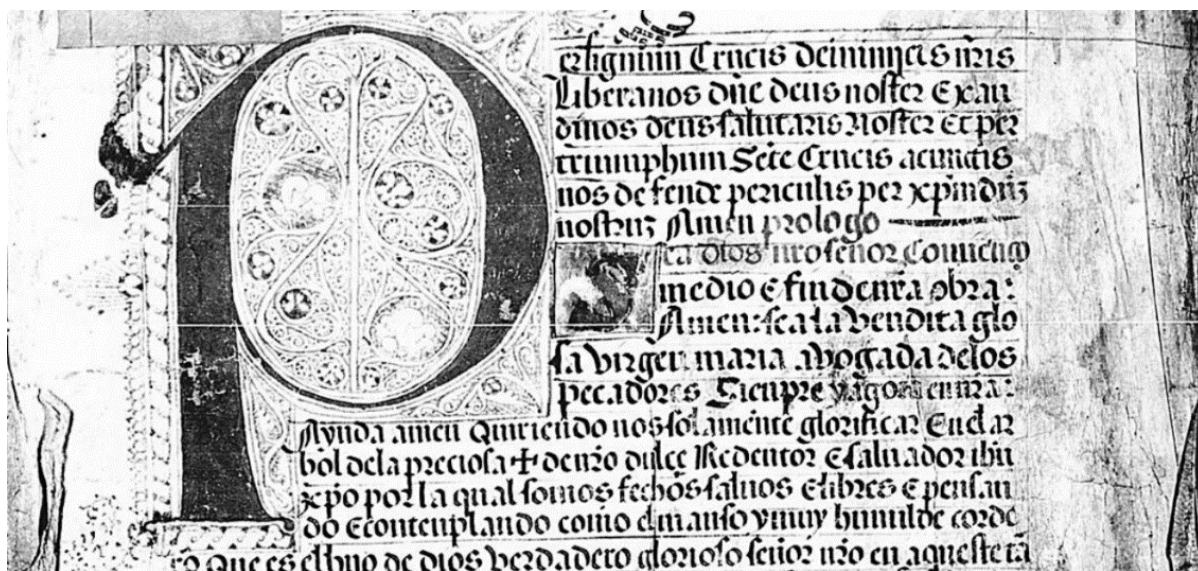 er lignum Crucis de inimicis nr̃is
Liberanos dñe deus noster Exau
dinos deus salutaris Noster Et per
triumphum Sc̃te Crucis acunctis
nos defende periculis per xp̃m dñz
nostruz Amen prologo
ea dios nr̃o señor Comienço
medio e fin de nr̃a obra:
Amen: sea la bendita glo
sa virgen maria abogada delos
pecadores Sienpre y agora en nr̃a:
Ayuda amen Quiriendo nos solamente glorificar En el ar
bol dela preciosa + de nr̃o dulçe Redentor e saluador ihũ
xp̃o por la qual somos fechos saluos e libres e pensan
do e contenplando como el manso y muy humilde corde
ro que es el hijo de dios verdadero glorioso señor nr̃o en aqueste